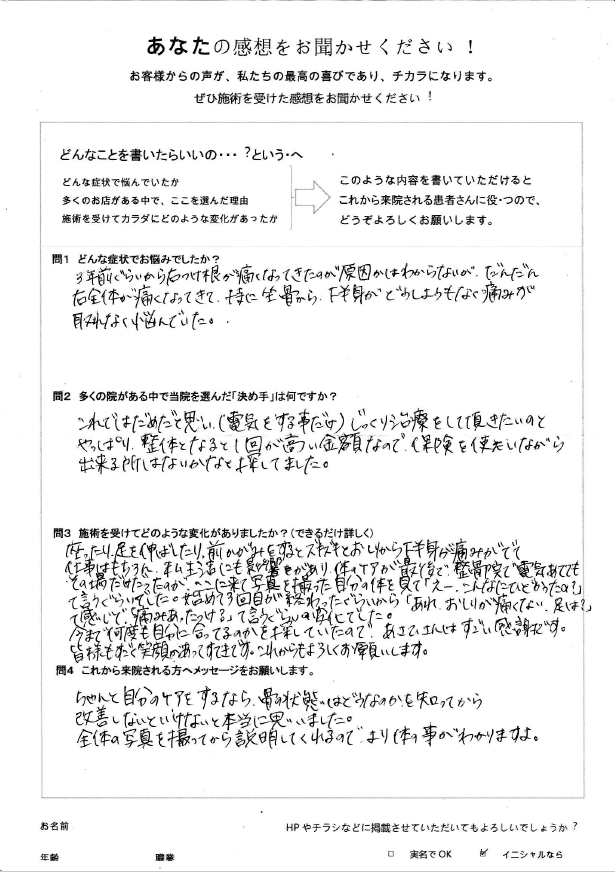 あなたの感想をお聞かせください！
お客様からの声が、私たちの最高の喜びであり、チカラになります。
ぜひ施術を受けた感想をお聞かせください！
どんなことを書いたらいいの・・・？という・へ
どんな症状で悩んでいたか
多くのお店がある中で、ここを選んだ理由
施術を受けてカラダにどのような変化があったか
このような内容を書いていただけると
これから来院される患者さんに役・つので、
どうぞよろしくお願いします。
問1 どんな症状でお悩みでしたか？
3年前ぐらいから右つけ根が痛くなってきたのが原因かはわからないが、だんだん
右全体が痛くなってきて、特に坐骨から、下半身がどうしようもなく痛みが
取れなく悩んでいた。
問2 多くの院がある中で当院を選んだ「決め手」は何ですか？
これではだめだと思い、(電気をする事だけ)じっくり治療をして頂きたいのと
やっぱり、整体となると1回が高い金額なので、保険を使いながら
出来る所はないかなと探してました。
問3 施術を受けてどのような変化がありましたか？（できるだけ詳しく）
座ったり、足を伸ばしたり、前かがみをするとズキズキとおしりから下半身が痛みがでて
仕事はもちろん、私生活にも影響があり、体のケアが最優で、整骨院で電気あても
その場だけだったのが、ここに来て写真を撮った自分の体を見て「えー、こんなにひどかったの？」
て言うぐらいでした。始めて3回目が終わったぐらいから「あれ、おしりが痛くない、足は？」
て感じで「痛みあったっけ？」て言うぐらいの変化でした。
今まで何度も自分に合ってるのかを探していたので、あさひさんはすごい感謝です。
皆様もすごく笑顔があってすてきです。これからもよろしくお願いします。
問4 これから来院される方へメッセージをお願いします。
ちゃんと自分のケアをするなら、骨の状態はどうなのかを知ってから
改善しないといけないと本当に思いました。
全体の写真を撮ってから説明してくれるので、より体の事がわかりますよ。
お名前
HPやチラシなどに掲載させていただいてもよろしいでしょうか？
年齢 職業 □ 実名でOK ☑ イニシャルなら